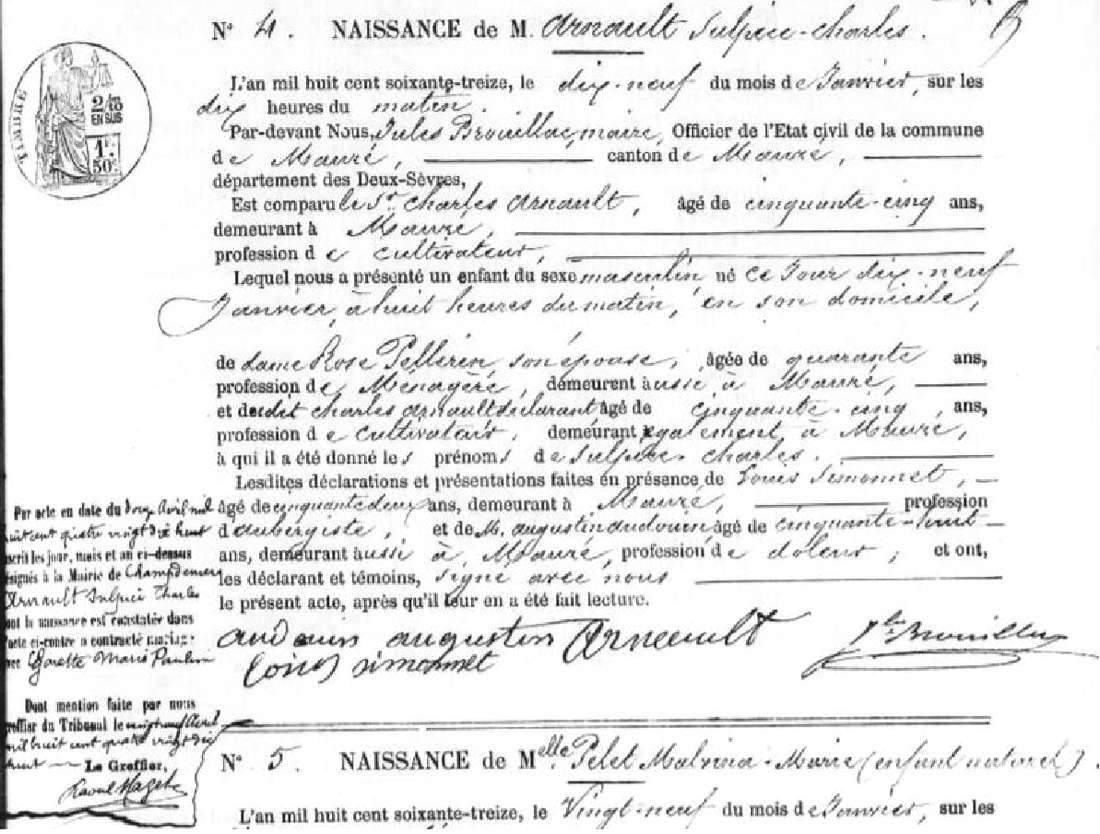 N° 4. NAISSANCE de M. Arnault Sulpice-Charles.
TIMBRE
2/10
EN SUS
1F.
50c.
L'an mil huit cent soixante-treize, le dix-neuf du mois de Janvier, sur les
dix heures du matin.
Par-devant Nous, Jules Brouillac, maire, Officier de l'Etat civil de la commune
de Mauzé, canton de Mauzé,
département des Deux-Sèvres,
Est comparu le Sr. Charles Arnault, âgé de cinquante-cinq ans,
demeurant à Mauzé,
profession de cultivateur,
Lequel nous a présenté un enfant du sexe masculin, né ce jour dix-neuf
Janvier, à huit heures du matin, en son domicile,
de dame Rose Pellerin, son épouse, âgée de quarante ans,
profession de Ménagère, demeurent aussi à Mauzé,
et dudit Charles Arnault déclarant âgé de cinquante-cinq, ans,
profession de cultivateur, demeurant également à Mauzé,
à qui il a été donné les prénoms de Sulpice-Charles.
Lesdites déclarations et présentations faites en présence de Louis Simonnet,
âgé de cinquante deux ans, demeurant à Mauzé, profession
d'aubergiste, et de M. Augustin Audouin, âgé de cinquante-huit
ans, demeurant aussi à Mauzé, profession de doleur, et ont,
les déclarant et témoins, signé avec nous
le présent acte, après qu'il leur en a été fait lecture.
audouin augustin Arnault Jles Brouillac
Louis simonnet
Par acte en date du douze Avril mil
huit cent quatre vingt dix huit
inscrit les jour, mois et an ci-dessus
désignés à la Mairie de Champdeniers
Arnault Sulpice Charles
dont la naissance est constatée dans
l'acte ci-contre a contracté mariage
avec Marie Pauline
Dont mention faite par nous
greffier du Tribunal le vingt neuf Avril
mil huit cent quatre vingt dix
huit
Le Greffier,
N° 5. NAISSANCE de Melle Pelet Malvina-Marie (enfant naturel).
L'an mil huit cent soixante-treize, le Vingt-neuf du mois de Janvier, sur les